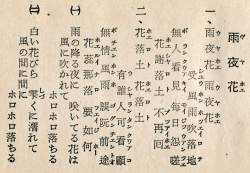 雨夜花
一、雨夜花雨夜花
受風雨吹落地
無人看見每日怨嗟
花謝落土不再回
二、花落土花落土
有誰人可看顧
無情風雨誤阮前途
花蕊那落要如何
㈠ 雨の降る夜に 咲いてる花は
風に吹かれて ホロホロ落ちる
㈡ 白い花びら 雫に濡れて
風の間に間に ホロホロ落ちる